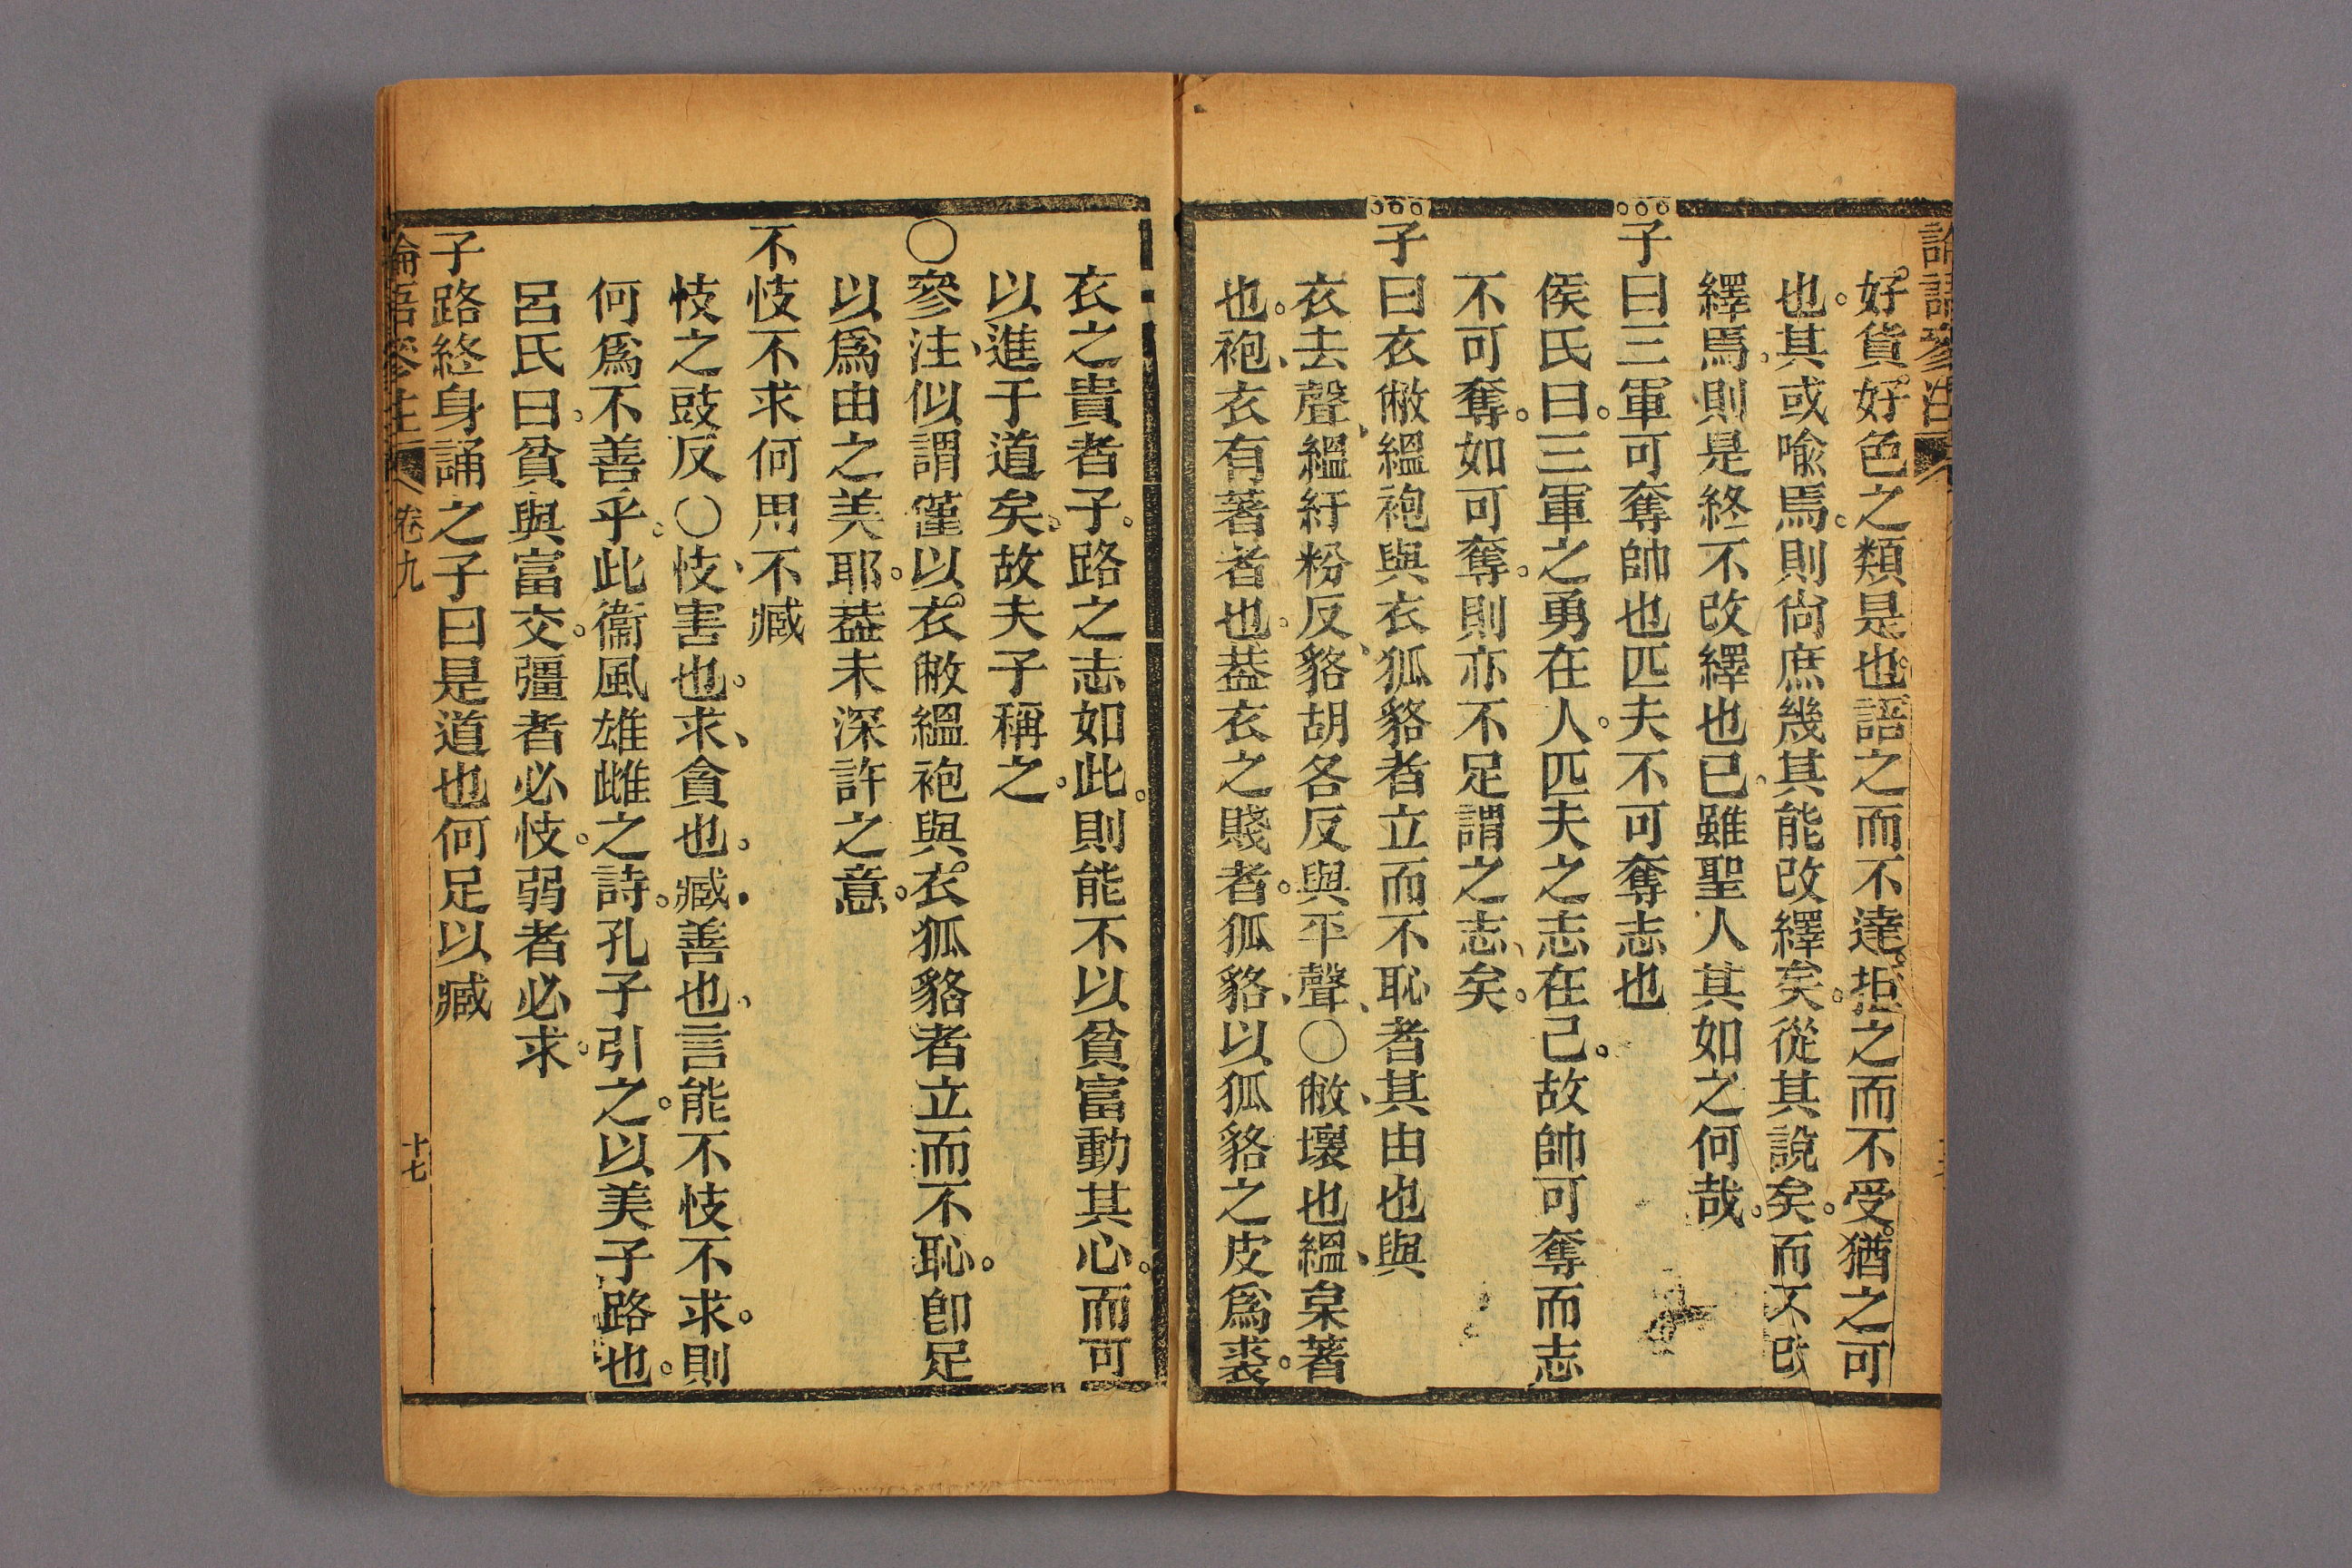 論語參注
好貨好色之類是也。語之而不達。拒之而不受。猶之可
也。其或喻焉。則尙庶幾其能改繹矣。從其說矣。而不改
繹焉。則是終不改繹也已。雖聖人其如之何哉。
子曰三軍可奪帥也匹夫不可奪志也
侯氏曰。三軍之勇在人。匹夫之志在己。故帥可奪而志
不可奪。如可奪。則亦不足謂之志矣。
子曰衣敝縕袍與衣狐貉者立而不恥者其由也與
衣去聲、縕紆粉反、貉胡各反、與平聲、〇敝、壞也、縕、枲著
也。袍、衣有著者也。葢衣之賤者。狐貉、以狐貉之皮爲裘。
衣之貴者。子路之志如此。則能不以貧富動其心。而可
以進于道矣。故夫子稱之。
〇參注、似謂僅以衣敝縕袍與衣狐貉者立而不恥。卽足
以爲由之美耶。葢未深許之意。
不忮不求何用不臧
忮之豉反〇忮、害也。求、貪也。臧、善也、言能不忮不求。則
何爲不善乎。此衞風雄雌之詩。孔子引之。以美子路也。
呂氏曰。貧與富交。彊者必忮。弱者必求。
子路終身誦之子曰是道也何足以臧
論語參注 卷九 十七